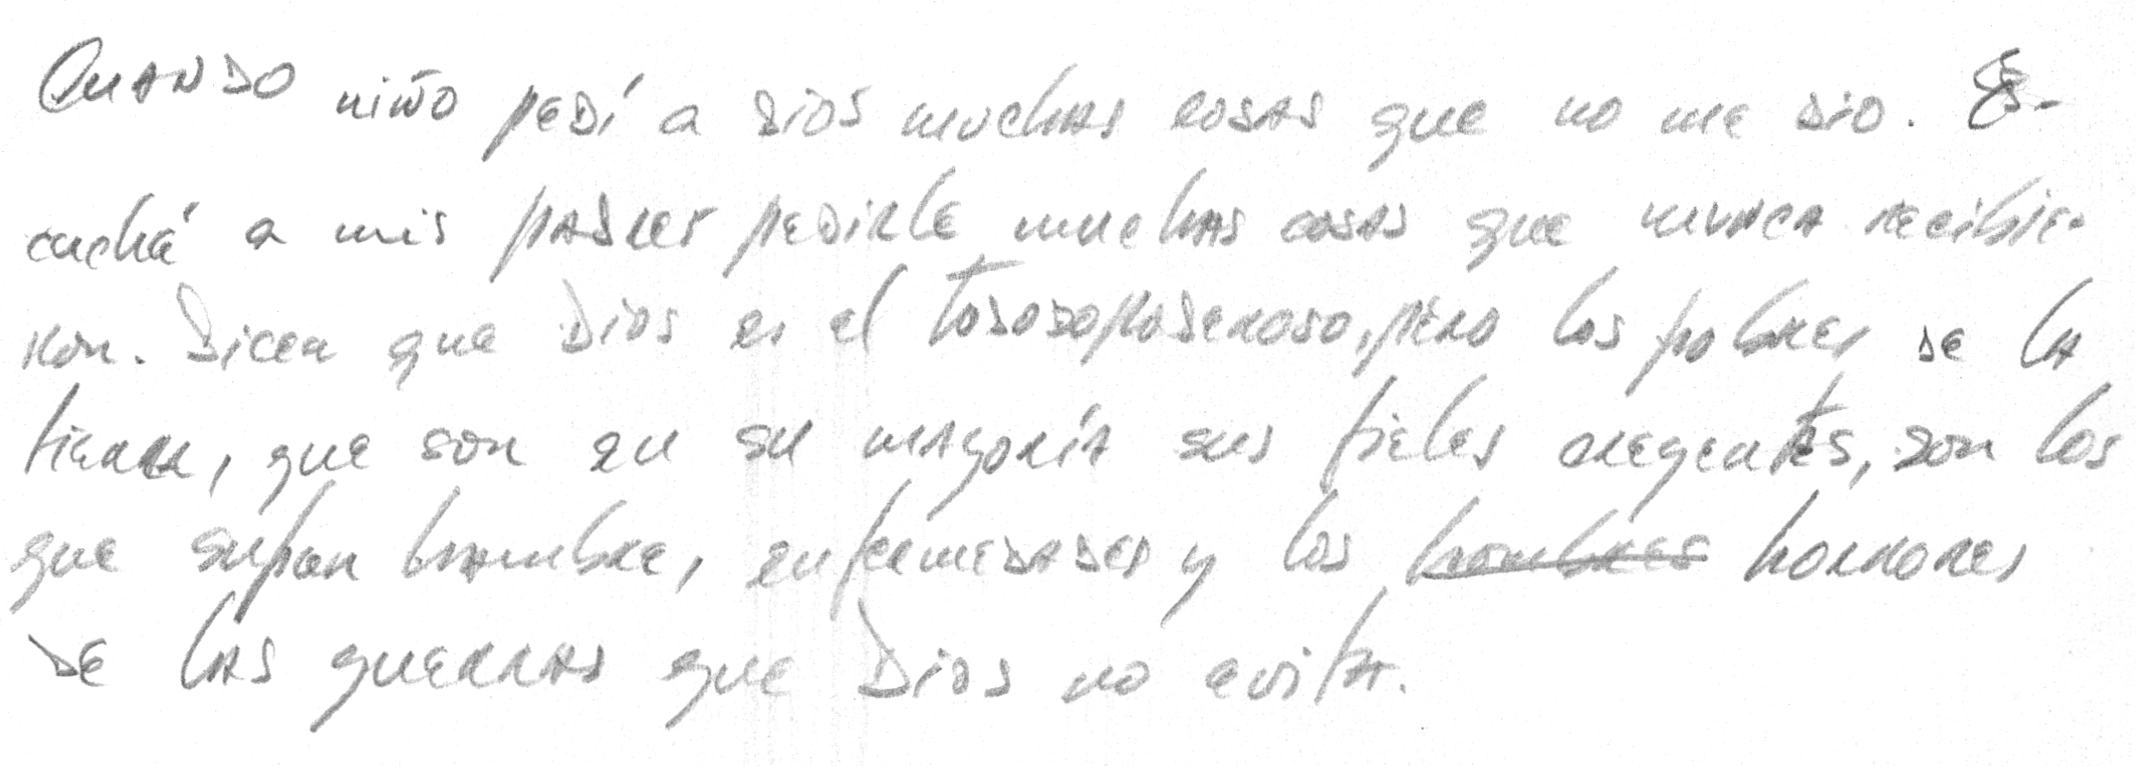 Cuando niño pedí a Dios muchas cosas que no me dio. Es-
cuché a mis padres pedirle muchas cosas que nunca recibie-
ron. Dicen que Dios es el Todopoderoso, pero los pobres de la
tierra, que son en su mayoría sus fieles creyentes, son los
que sufren hambre, enfermedades y los hombres horrores
de las guerras que Dios no evita.